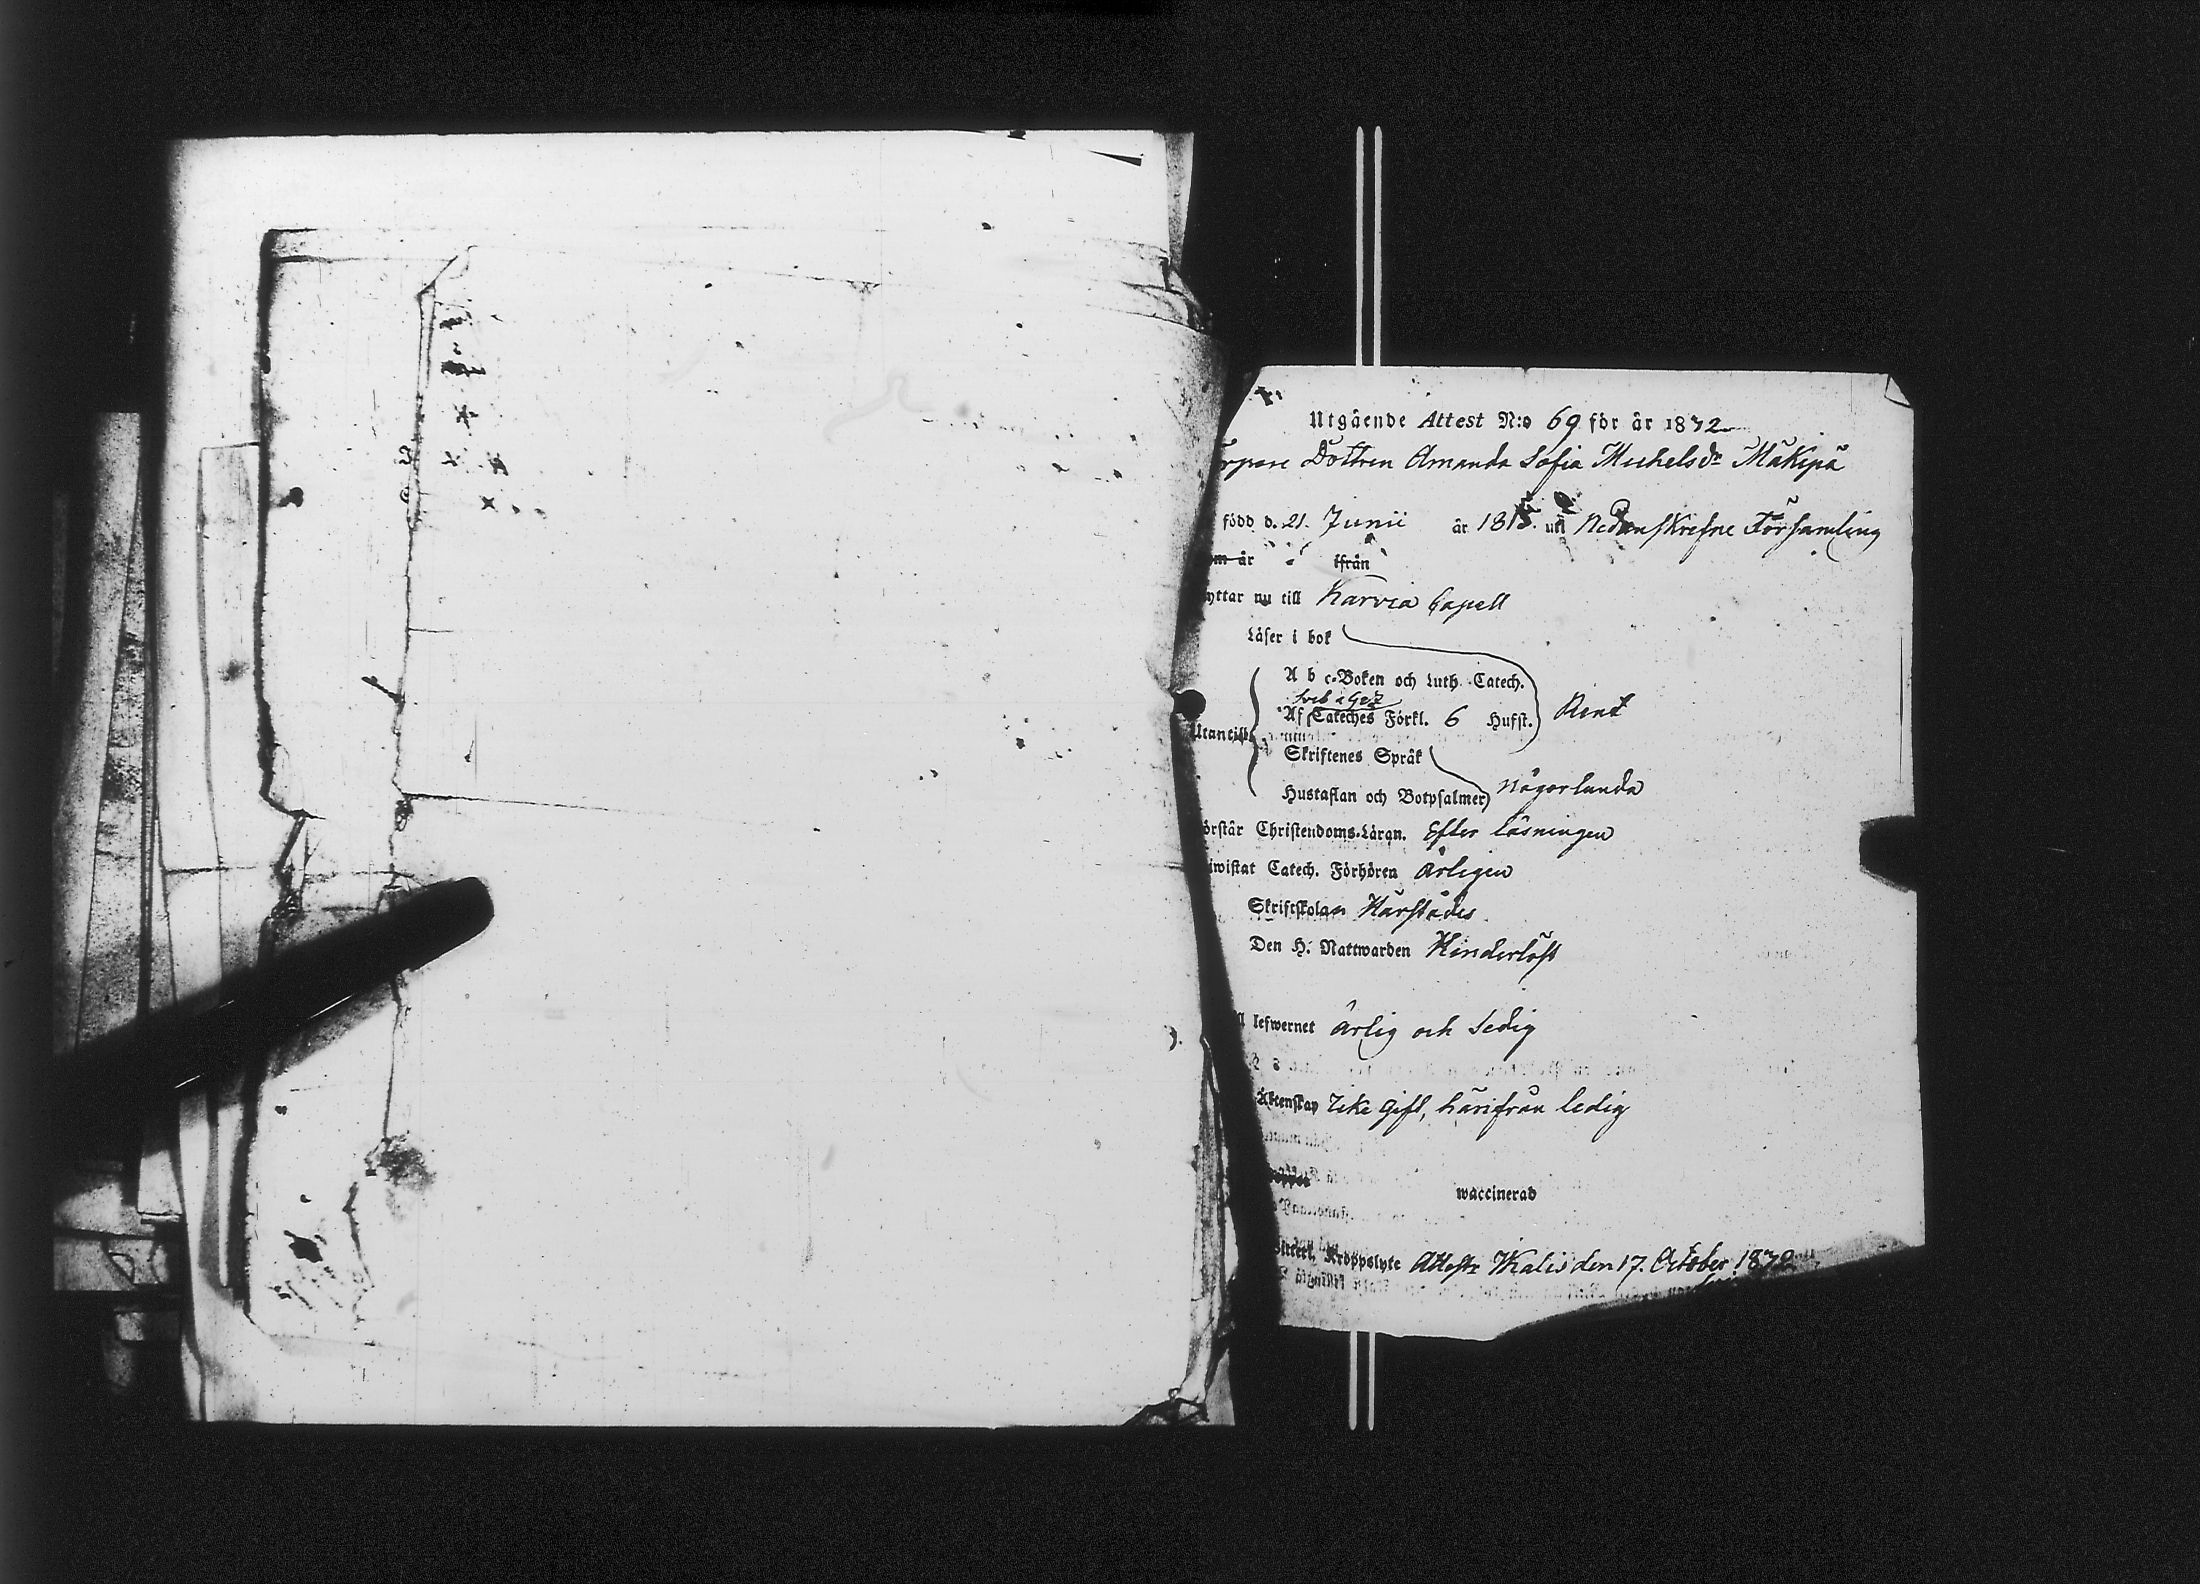 Utgående Attest N:o 69 för år 1872
rpare Dottren Amanda Sofia Michelsdr Mäkipä
född d. 21. Junii år 18 uti Nedanskrefne Församling
om år ifrån
yttar nu till Karvia Capell
Läser i bok
A b c-Boken och Luth. Catech.
Sveb. &
Af Cateches Förkl. 6 Hufst. Rent
Utantill
Skriftenes Språk
Hustaflan och Botpsalmer någorlunda
örstår Christendoms-Läran. Efter läsningen
iwistat Catech. Förhören Årligen
Skriftskolan Härstädes
Den H. Nattwarden Hinderlöst
ll lefwernet ärlig och Sedig
Äktenskap Icke gift, härifrån ledig
oppor
waccinerad
Kroppslyte Attestr. den 17. October 1872